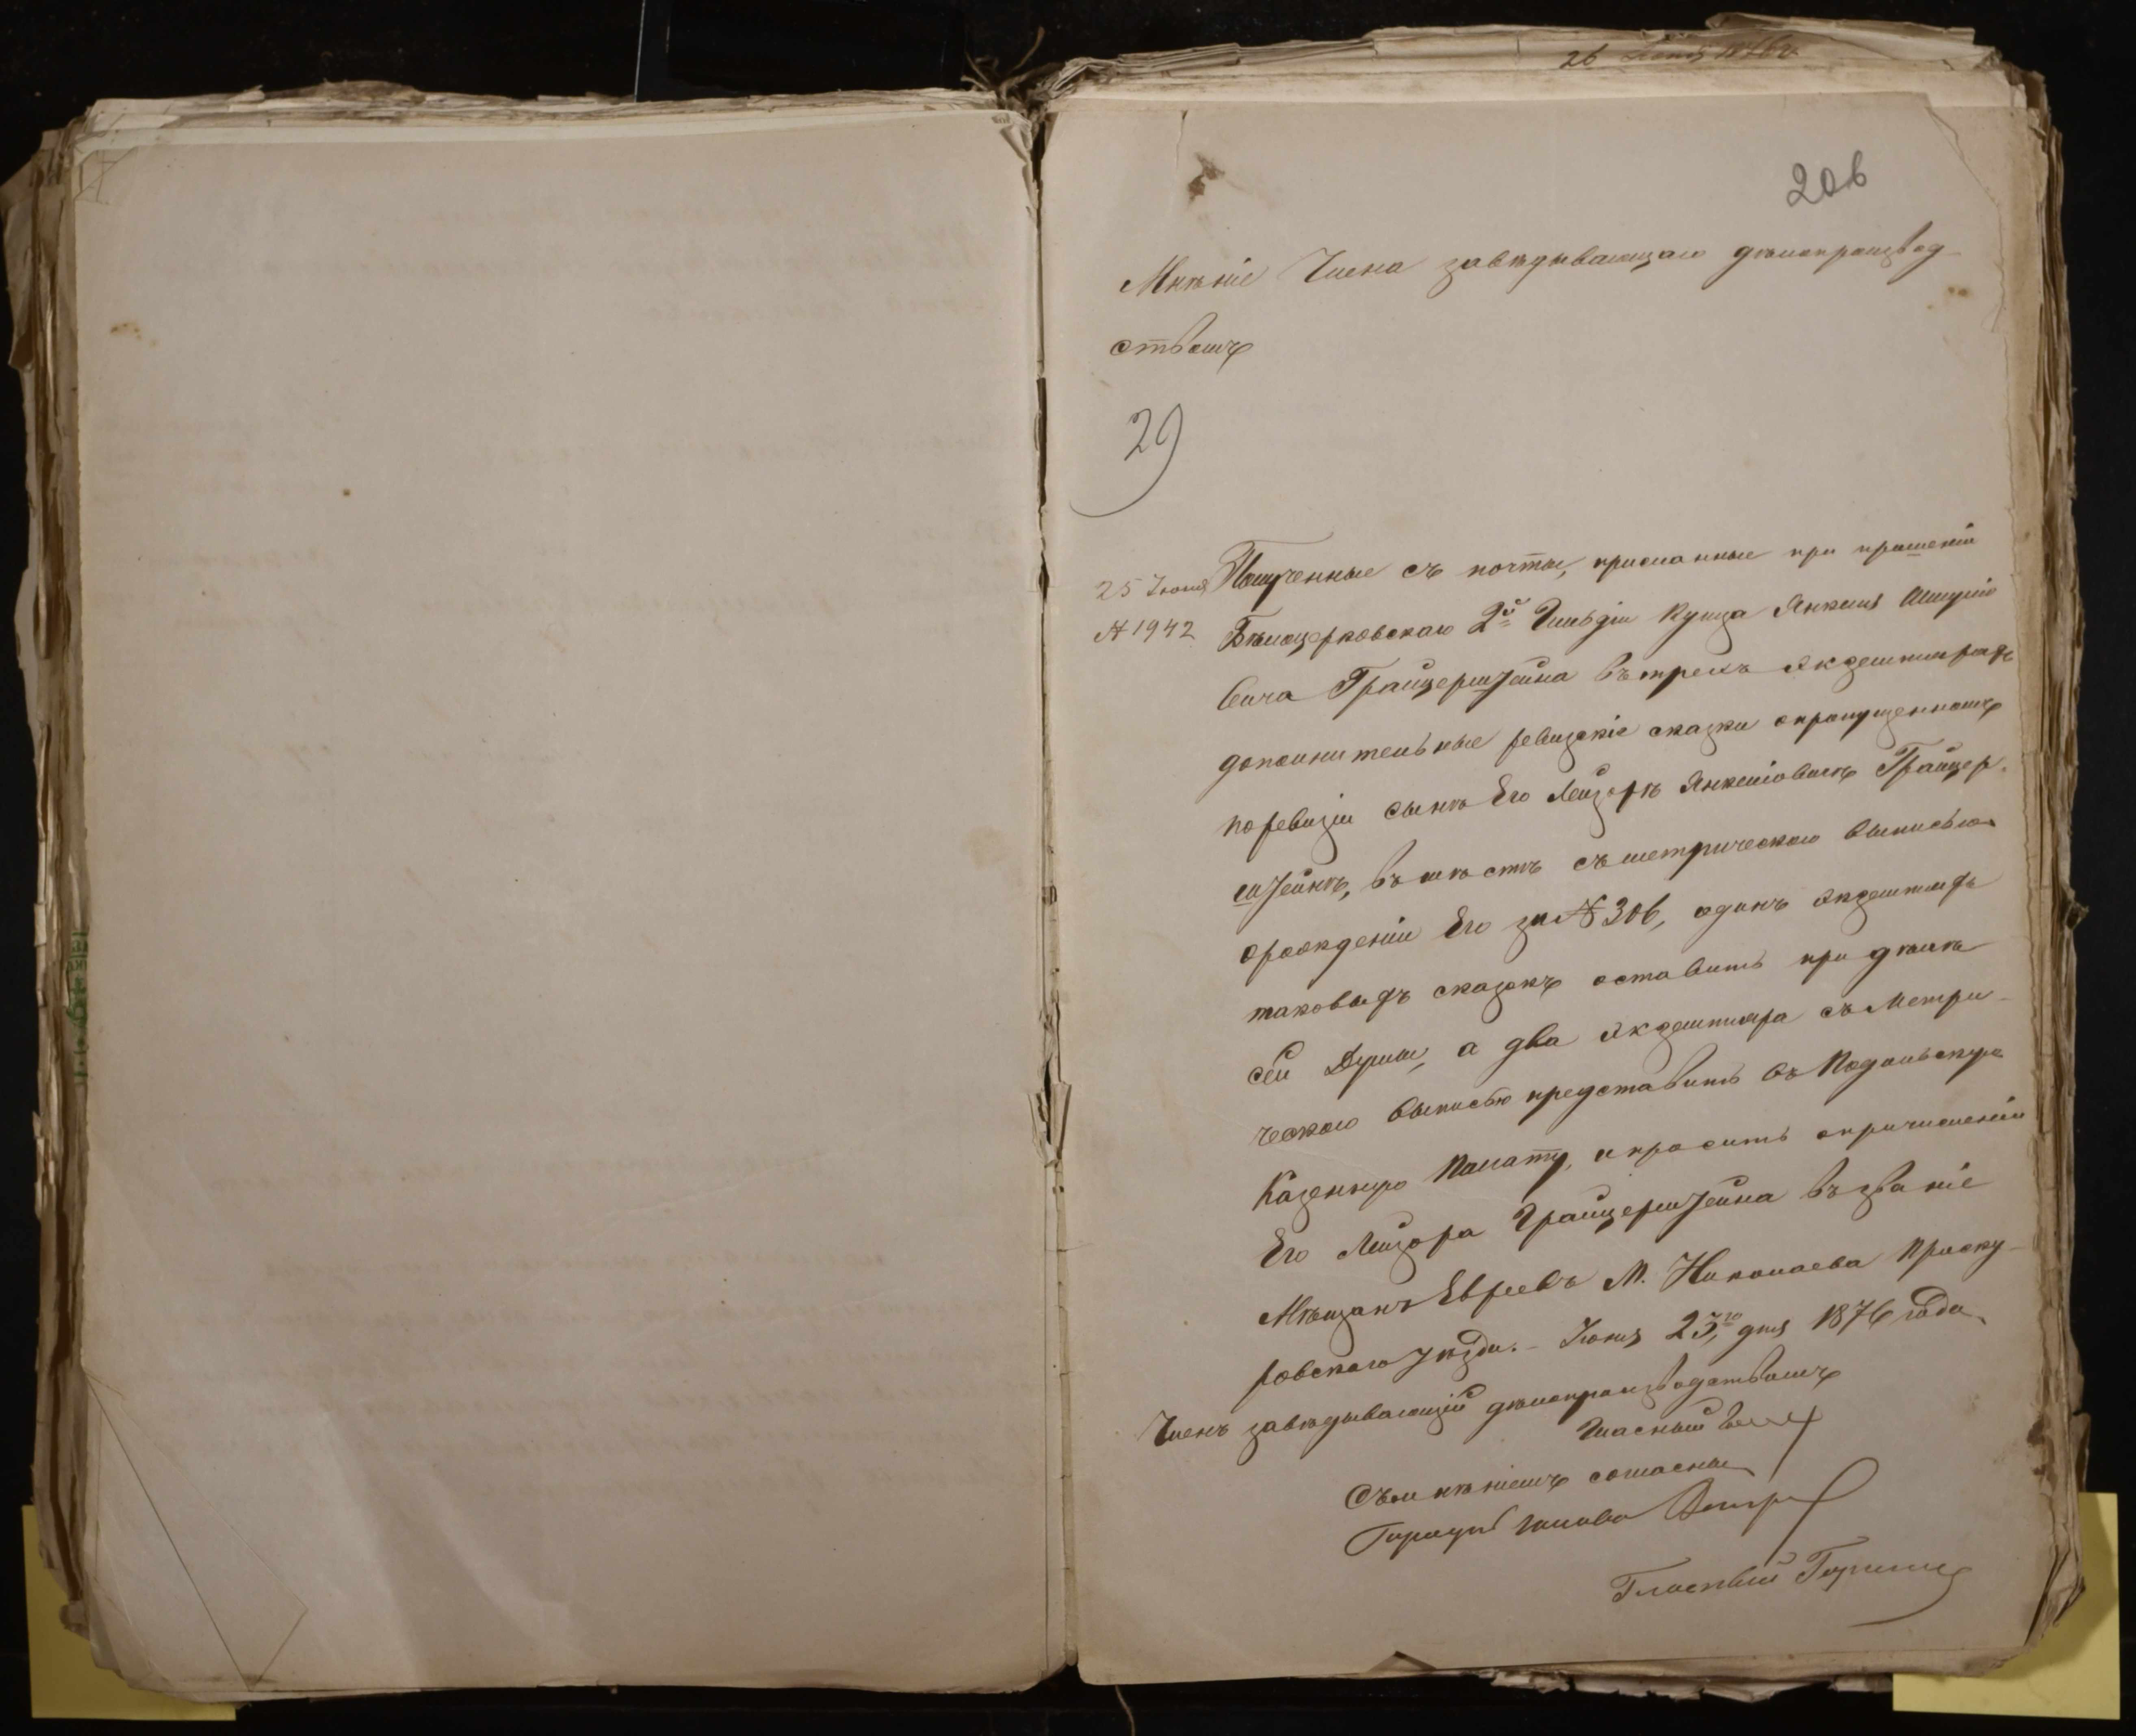 206
Мнѣніе Члена завѣдывающаго дѣлопроизвод-
ствомъ
29
25 Іюня
№ 1942
Полученные съ почты, присланные при прошеніи
Бѣлоцерковскаго 2й Гильдіи Купца Янкеля
вича Грайцерштейна въ трехъ экземплярахъ
дополнительные ревизскіе сказки о пропущенномъ
по ревизіи сынѣ Его Лейзорѣ Янкелiовичѣ Грайцер-
штейнѣ, вмѣстѣ съ метрическою выписью
о рожденіи Его за № 306, одинъ экземпляръ
таковыхъ сказокъ оставить при дѣлѣ
сей Думы, а два экземпляра съ Метри-
ческою выписью представить въ Подольскую
Казенную Палату, и просить о причисленіи
Его Лейзора Грайцерштейна въ званіе
Мѣщанъ Евреевъ М. Николаева Проску-
ровскаго уѣзда. – Іюня 25го дня 1876 года.
Членъ завѣдывающій дѣлопроизводствомъ
Гласный
Съ мнѣніемъ согласны
Городской голова
Гласный